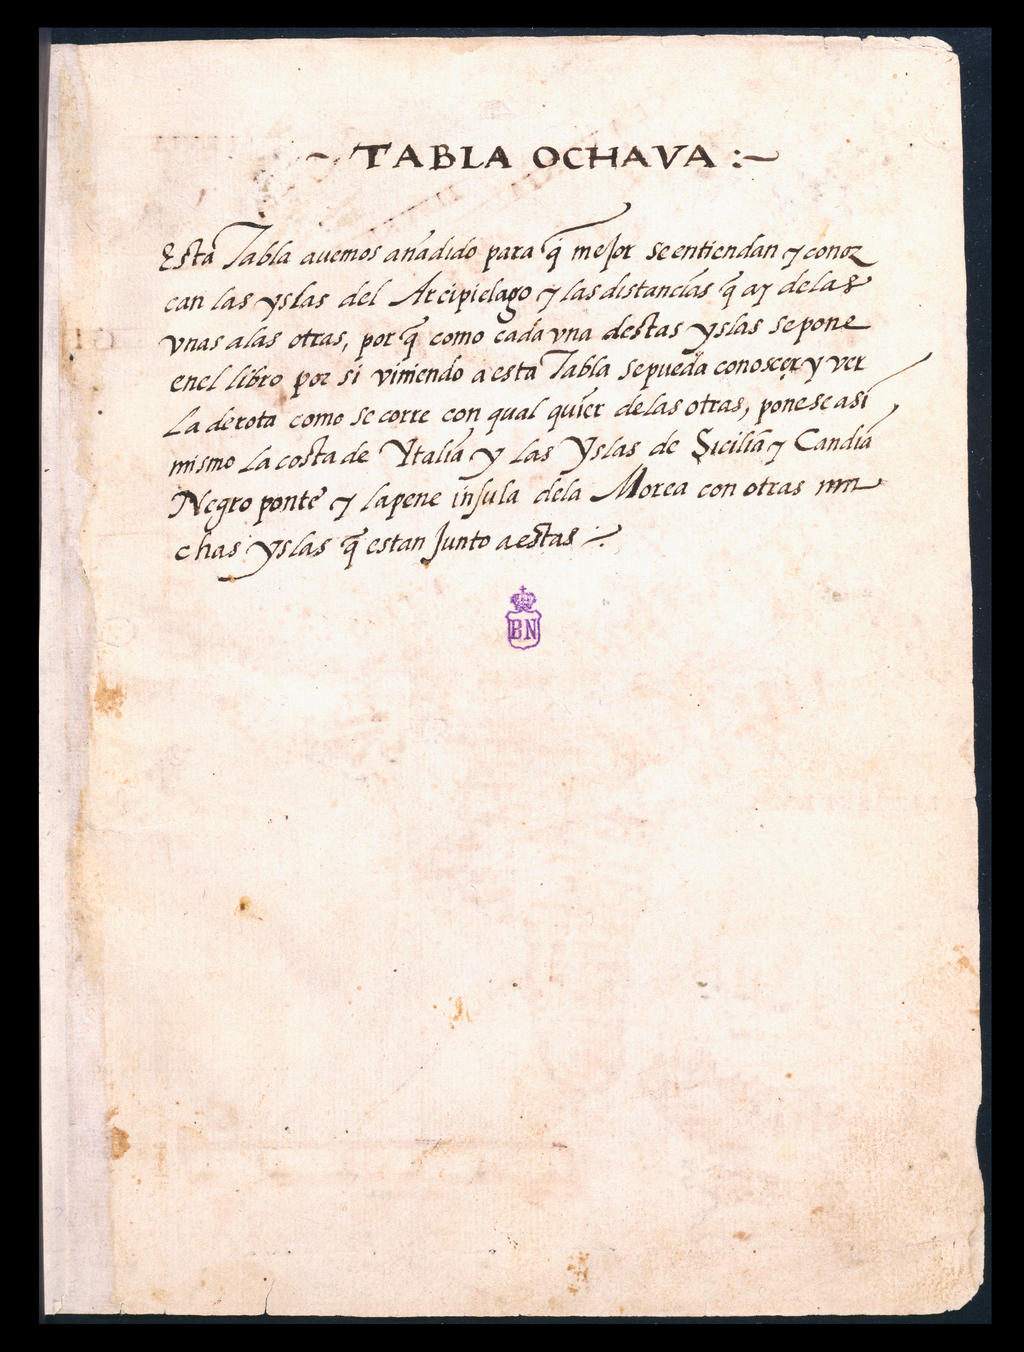 ~ TABLA OCHAVA :~
Esta Tabla auemos añadido para q̃ mejor se entiendan y conoz
can las yslas del Arcipielago y las distancias q̃ ay de las
vnas a las otras, por q̃ como cada vna destas yslas se pone
en el libro por si viniendo a esta Tabla se pueda conoscer y ver
La derota como se corre con qual quier de las otras, ponese asi
mismo La costa de Ytalia y las Yslas de Sicilia y Candia,
Negro ponte y la pene insula de la Morea con otras mu
chas yslas q̃ estan Junto a estas :~
BN